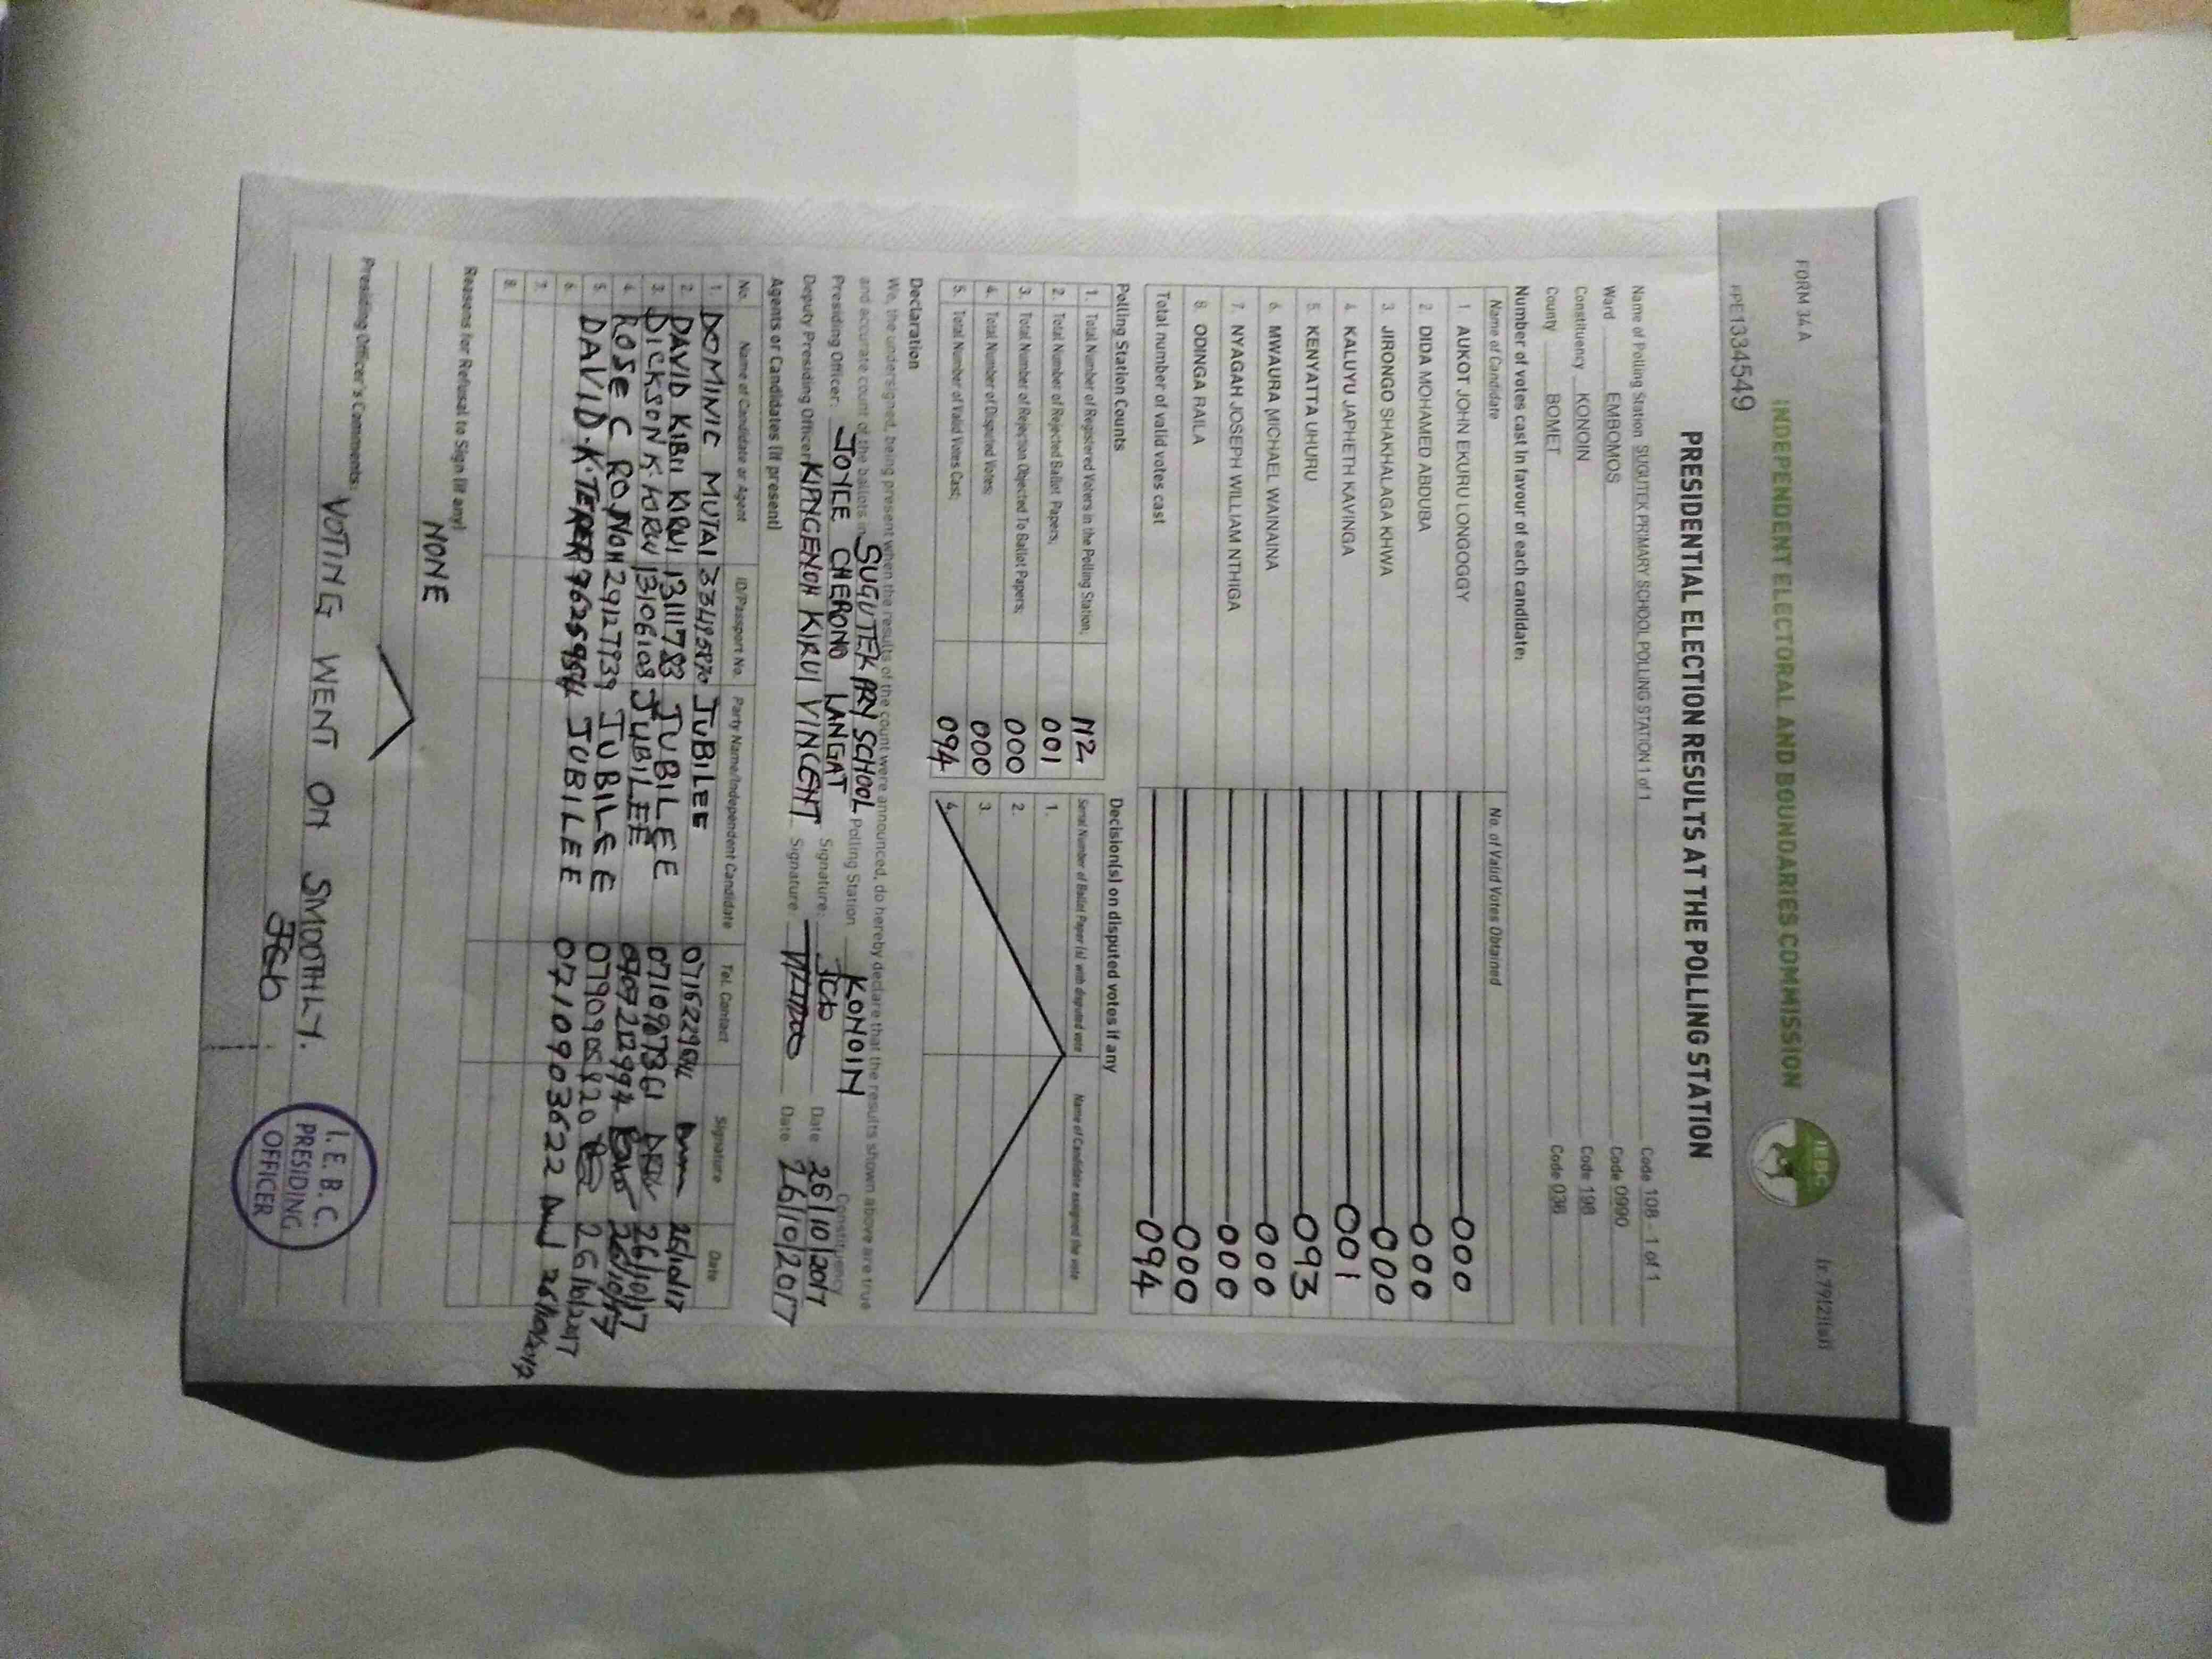 FORM 34A
(r.79(2)(a))
INDEPENDENT ELECTORAL AND BOUNDARIES COMMISSION
IEBC
PPE1334549
PRESIDENTIAL ELECTION RESULTS AT THE POLLING STATION
Name of Polling Station SUGUTEK PRIMARY SCHOOL POLLING STATION 1 of 1 Code 108 - 1 of 1
Ward EMBOMOS Code 0990
Constituency KONOIN Code 198
County BOMET Code 036
Number of votes cast in favour of each candidate:
Name of Candidate No. of Valid Votes Obtained
1. AUKOT JOHN EKURU LONGOGGY 000
2. DIDA MOHAMED ABDUBA 000
3. JIRONGO SHAKHALAGA KHWA 000
4. KALUYU JAPHETH KAVINGA 001
5. KENYATTA UHURU 093
6. MWAURA MICHAEL WAINAINA 000
7. NYAGAH JOSEPH WILLIAM NTHIGA 000
8. ODINGA RAILA 000
Total number of valid votes cast 094
Polling Station Counts
1. Total Number of Registered Voters in the Polling Station; 112
2. Total Number of Rejected Ballot Papers; 001
3. Total Number of Rejection Objected To Ballot Papers; 000
4. Total Number of Disputed Votes; 000
5. Total Number of Valid Votes Cast; 094
Decision(s) on disputed votes if any
Serial Number of Ballot Paper (s) with disputed vote Name of Candidate assigned the vote
1.
2.
3.
4.
Declaration
We, the undersigned, being present when the results of the count were announced, do hereby declare that the results shown above are true
and accurate count of the ballots in SUGUTEK PRY SCHOOL Polling Station KONOIN Constituency
Presiding Officer: JOYCE CHERONO LANGAT Signature: Date 26/10/2017
Deputy Presiding Officer KIPNGENOH KIRUI VINCENT Signature: Date 26/10/2017
Agents or Candidates (if present)
No. Name of Candidate or Agent ID/Passport No. Party Name/Independent Candidate Tel. Contact Signature Date
1. DOMINIC MUTAI JUBILEE 26/10/17
2. DAVID KIBII KIRUI 13111783 JUBILEE 26/10/17
3. DICKSON K KORIR 13106108 JUBILEE 26/10/17
4. ROSE C RONOH 29127939 JUBILEE 26/10/2017
5. DAVID.K. JUBILEE 0710903622 26/10/2017
6.
7.
8.
Reasons for Refusal to Sign (if any)
NONE
Presiding Officer's Comments:
VOTING WENT ON SMOOTHLY.
I.E.B.C.
PRESIDING
OFFICER